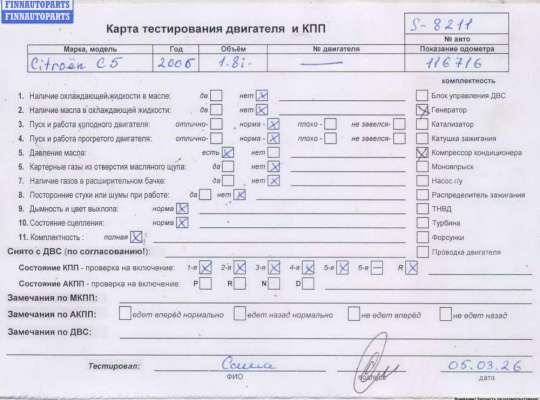 FINNAUTOPARTS
FINNAUTOPARTS
Карта тестирования двигателя и КПП
S-8211
№ авто
Марка, модель Год Объём № двигателя Показание одометра
Citroën C5 2006 1.8i - — 116716
комплектность
1. Наличие охлаждающей жидкости в масле: да нет X Блок управления ДВС
2. Наличие масла в охлаждающей жидкости: да нет X Генератор
3. Пуск и работа холодного двигателя: отлично- норма - X плохо - не завелся- Катализатор
4. Пуск и работа прогретого двигателя: отлично- норма - X плохо - не завелся- Катушка зажигания
5. Давление масла: есть X нет Компрессор кондиционера
6. Картерные газы из отверстия масляного щупа: да нет X Моновпрыск
7. Наличие газов в расширительном бачке: да нет X Насос г/у
8. Посторонние стуки или шумы при работе: да нет X Распределитель зажигания
9. Дымность и цвет выхлопа: норма X ТНВД
10. Состояние сцепления: норма X Турбина
11. Комплектность : полная X Форсунки
Снято с ДВС (по согласованию!): Проводка двигателя
Состояние КПП - проверка на включение: 1-я X 2-я X 3-я X 4-я X 5-я X 6-я — R X
Состояние АКПП - проверка на включение: P R N D
Замечания по МКПП:
Замечания по АКПП: едет вперёд нормально едет назад нормально не едет вперёд не едет назад
Замечания по ДВС:
Тестировал: 05.03.26
ФИО подпись дата